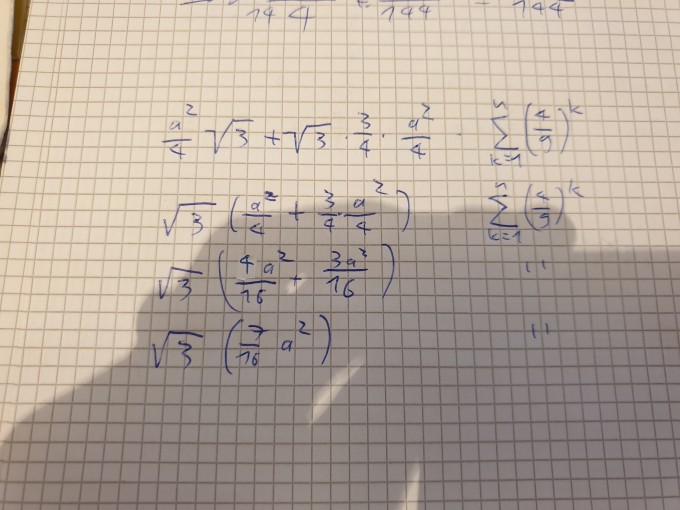 14 4 = 144 - 144
a²/4 √3 + √3 · 3/4 · a²/4 · ∑ₖ₌₁ⁿ (4/9)ᵏ
√3 (a²/4 + 3/4 a²/4) ∑ₖ₌₁ⁿ (4/9)ᵏ
√3 (4a²/16 + 3a²/16) ''
√3 (7/16 a²) ''